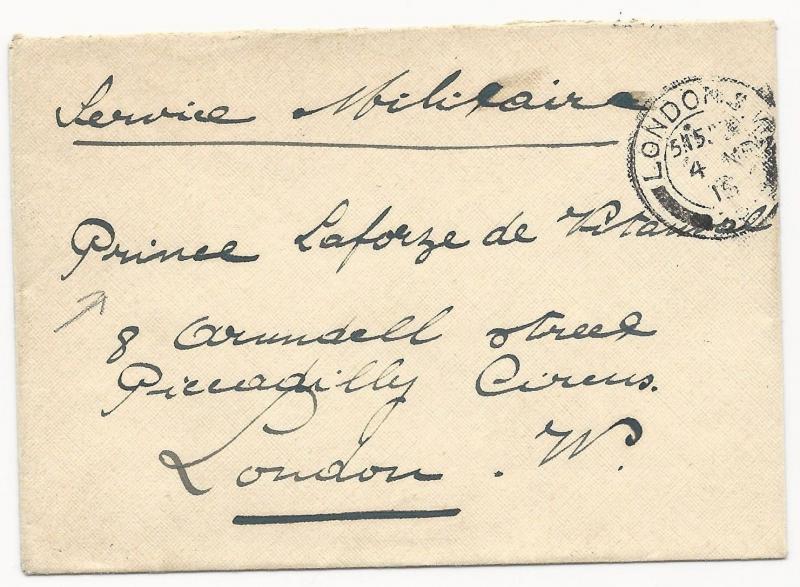 Service Militaire
LONDON. S.W.
5.15. PM
4
15
Prince Laforze de
8 Arundell street
Piccadilly Circus.
London. W.